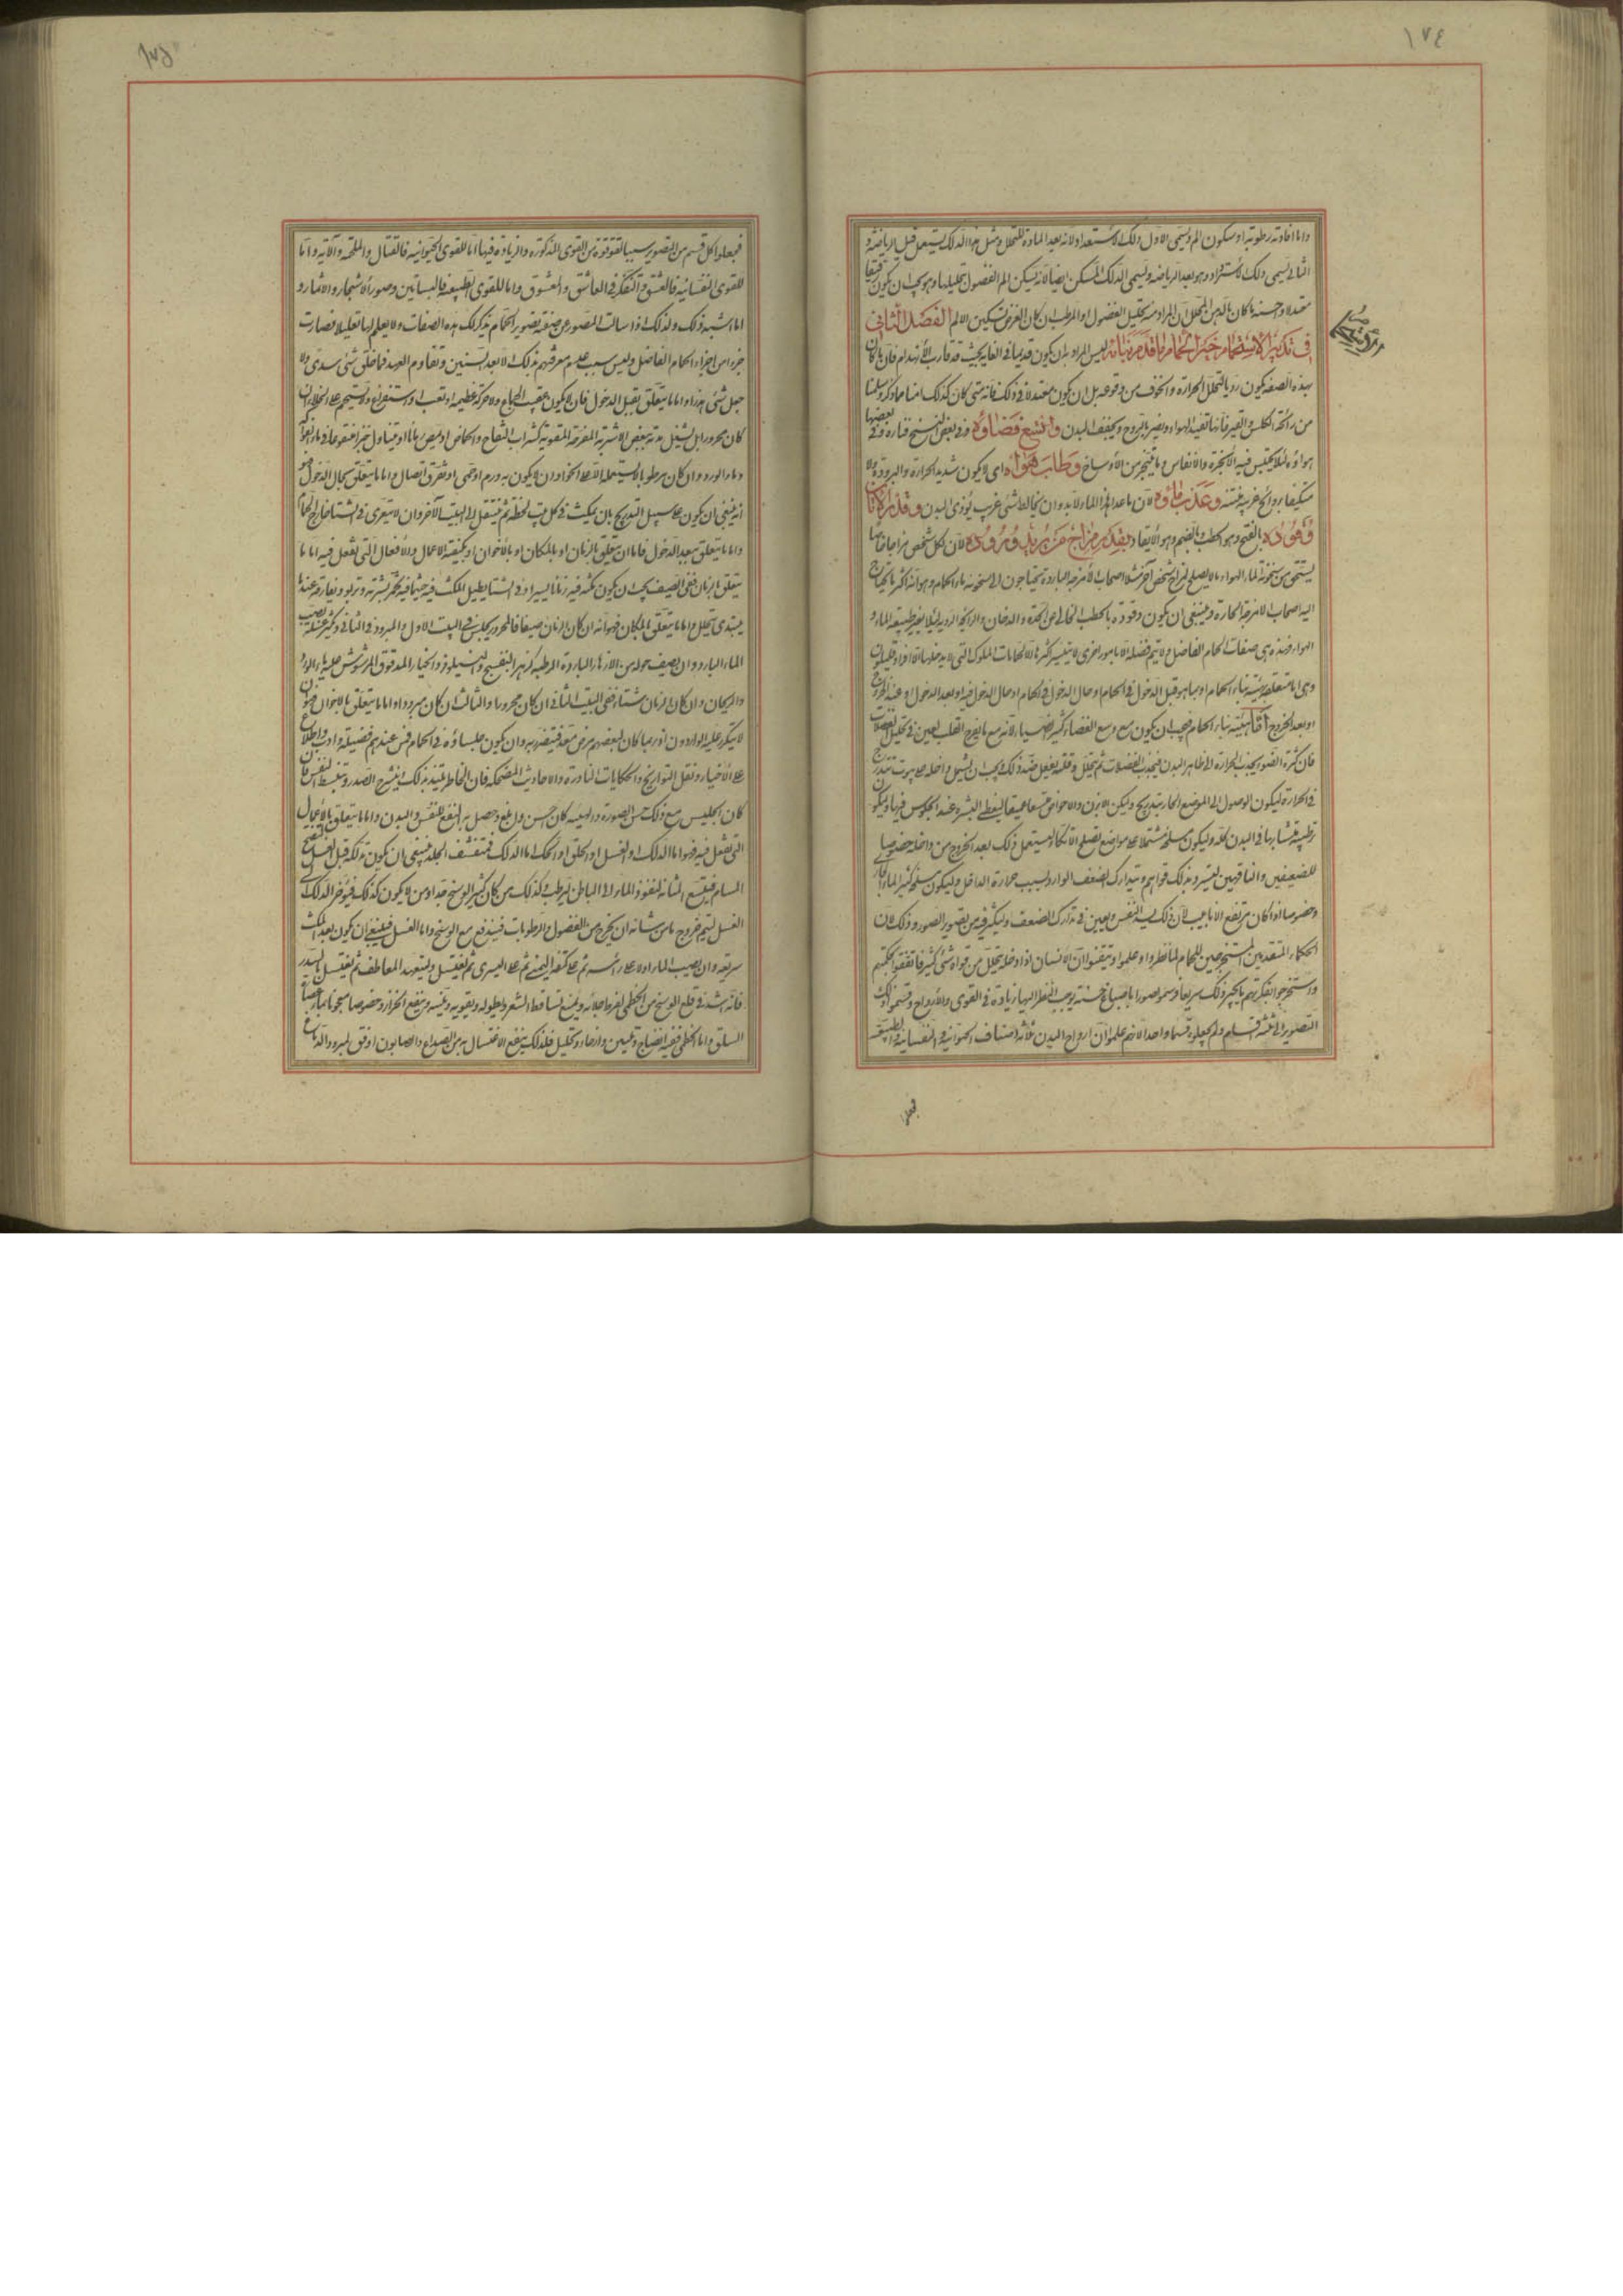 ١٧٤
واما افادته رطوبته او سكون الم ويسمى الاول دلك الاستعداد لانه يعد المادة للتحلل ومثل هذا الدلك يستعمل قبل الرياضة و
الثانى يسمى دلك الاسترداد وهو بعد الرياضة ويسمى الدلك المسكن ايضا لانه يسكن الم الفضول بتحليلها وهو يجب ان يكون رقيقا
معتدلا واحسنه ما كان بالدهن المحلل ان المراد منه تحليل الفضول او المرطب ان كان الغرض تسكين الالم الفصل الثانى
فى تدبير الاستحمام خير الحمام ما قدم بناؤه ليس المراد به ان يكون قديما فى الغاية بحيث قد قارب الانهدام فان ما كان
بهذه الصفة يكون رديا لتحلل الحرارة والخوف من وقوعه بل ان يكون معتدلا فى ذلك فانه متى كان كذلك امنا مما ذكر وسلمنا
من رائحة الكلس والقير فانها تفسد الهواء وتضر بالروح وتجفف البدن واتسع فضاؤه وفى بعض النسخ فناؤه وفى بعضها
هواؤه لئلا يحتبس فيه الابخرة والانفاس وما يتبخر من الاوساخ وطاب هواه اى لا يكون شديد الحرارة والبرودة ولا
متكيفا بروائح غريبة منتنة وعذب ماؤه لان ما عدا هذا الماء لابد وان يخالطه شئ غريب يؤذى البدن وقدر الاتان
وقوده بالفتح وهو الحطب وبالضم وهو الايقاد بقدر مزاج من يريد وروده لان لكل شخص مزاجا خاصا
يستحق من سخونة الماء والهواء ما لا يصلح لمزاج شخص آخر مثلا اصحاب الامزجة الباردة يحتاجون الى سخونة ماء الحمام وهوائه اكثر ما يحتاج
اليه اصحاب الامزجة الحارة وينبغى ان يكون وقوده بالحطب الخالى عن الحدة والدخان والرائحة الردية لئلا يغير طبيعة الماء و
الهواء وهذه هى صفات الحمام الفاضل ولا يتم فضله الا بامور اخرى لا يتيسر اكثرها الا لحمامات الملوك التى لا يدخلها الا افراد قليلون
وهى اما متعلقة بهيئة بناء الحمام او بما هو قبل الدخول فى الحمام او حال الدخول فى الحمام او حال الدخول فيه او بعد الدخول او عند الخروج
او بعد الخروج اما هيئة بناء الحمام فيجب ان يكون مع وسع الفضاء كثير الضياء لانه مع ما يفرح القلب يعين فى تحليل الفضلات
فان كثرة الضوء يجذب الحرارة الى ظاهر البدن فيجذب الفضلات ثم يتحلل وقلته يفعل ضد ذلك ويجب ان يشتمل داخله على بيوت تتدرج
فى الحرارة ليكون الوصول الى الموضع الحار بتدريج وليكن الابزن والاحواض متسعا عميقا ليغطى البشرة عند الجلوس فيها ويكون
ترطيبه متشابها فى البدن كله وليكون مسلخه مشتملا على مواضع تصلح للاتكاء ليستعمل ذلك بعد الخروج من داخله خصوصا
للضعيفين والناقهين ليسترد بذلك قواهم ويتدارك الضعف الوارد بسبب حرارة الداخل وليكون مسلخه كثير الماء الجارى
وخصوصا اذا كان مرتفع الانابيب لان ذلك يسر النفس ويعين فى تدارك الضعف وليكثر فيه من تصوير الصور وذلك لان
الحكماء المتقدمين المستخرجين للحمام لما نظروا وعلموا وتيقنوا ان الانسان اذا دخله يتحلل من قواه شئ كثير فاتفقوا بحكمتهم
واستخرجوا بفكرتهم ما يجبر ذلك سريعا ورسموا صورا باصباغ حسنة يوجب النظر اليها زيادة فى القوى والارواح وقسموا ذلك
التصوير الى ثلثة اقسام ولم يجعلوه قسما واحدا لانهم علموا ان ارواح البدن ثلاثة اصناف الحيوانية والنفسانية والطبيعية
فجعلوا
فجعلوا كل قسم من التصوير سببا لتقوية قوة من القوى المذكورة والزيادة فيها اما للقوى الحيوانية فالقتال والملحمة وآلاته واما
للقوى النفسانية فالعشق والتفكر فى العاشق والمعشوق واما للقوى الطبيعية فالبساتين وصور الاشجار والاثمار و
ما اشبه ذلك ولذلك اذا سألت المصور عن صفة تصوير الحمام يذكر لك هذه الصفات ولا يعلم لها تعليلا فصارت
جزءا من اجزاء الحمام الفاضل وليس سبب عدم معرفتهم بذلك الا بعد السنين وتقادم العهد فما خلق شئ سدى ولا
جعل شئ هزوا واما ما يتعلق بقبل الدخول فان لا يكون عقيب الجماع ولا حركة عظيمة او تعب او استفراغ ولا يستحم على الخلاء ان
كان محرورا بل يشتغل معدته ببعض الاشربة المفرحة المقوية كشراب التفاح والحماض او يمص رمانا او يتناول خبزا منقوعا فى ماء بارد
وماء الورد وان كان مرطوبا لا يستعمله الا على الخواء وان لا يكون به ورم او حمى او تفرق اتصال واما ما يتعلق بحال الدخول فهو
انه ينبغى ان يكون على سبيل التدريج بان يمكث فى كل بيت لحظة ثم ينتقل الى البيت الآخر وان لا يتعرى فى الشتاء خارج الحمام
واما ما يتعلق ببعد الدخول فاما ان يتعلق بالزمان او بالمكان او بالاخوان او بكيفية الاعمال والافعال التى تفعل فيه اما ما
يتعلق بالزمان ففى الصيف يجب ان يكون مكثه فيه زمانا يسيرا وفى الشتاء يطيل المكث فيه حيثما فيه تحمر بشرته وتربو ويفارقه عندما
يبتدى يتحلل واما ما يتعلق بالمكان فهو انه ان كان الزمان صيفا فالمحرور يجلس فى البيت الاول والمبرود فى الثانى ويكثر عنده بصب
الماء البارد وان يصيف حوله من الازهار الباردة الرطبة كزهر البنفسج والنيلوفر والخيار المدقوق المرشوش عليه ماء الورد
والريحان وان كان الزمان شتاء ففى البيت الثانى ان كان محرورا والثالث ان كان مبرودا واما ما يتعلق بالاخوان فهو ان
لا يكثر عليه الواردون اذ ربما كان لبعضهم مرض معد فيتضرر به وان يكون جلساؤه فى الحمام فمن عندهم فضيلة وادب واطلاع
على الاخبار ونقل التواريخ والحكايات النادرة والاحاديث المضحكة فان الخاطر يلتذ بذلك وينشرح الصدر وتنبسط النفس فان
كان الجليس مع ذلك حسن الصورة والهيئة كان احسن وابلغ وحصل به النفع للنفس والبدن واما ما يتعلق بالاعمال
التى تفعل فيه فهو اما الدلك او الغسل او الحلق او الحك اما الدلك فمنشف الجلد فينبغى ان يكون تدلكه قبل الغسل لتفتح
المسام فيتسع المشانة لنفوذ الماء الى الباطن ليرطب وكذلك من كان كثير الوسخ جدا ومن لا يكون كذلك فيؤخر الدلك عن
الغسل ليتم خروج ما من شانه ان يخرج من الفضول والرطوبات فيندفع مع الوسخ واما الغسل فينبغى ان يكون بعد المكث
سريعه وان يصيب الماء اولا على رأسه ثم على كتفه اليمنى ثم على اليسرى ثم يغتسل وليتعهد المعاطف ثم يغتسل بالسدر
فانه اشد فى قلع الوسخ من الخطمى لفرط جلائه ويمنع تساقط الشعر ويطوله ويقويه ويلينه وينفع الحزاز وخصوصا معجونا بماء عصارة
السلق واما الخطمى ففيه انضاج وتليين وارخاء وتحليل فلذلك ينفع الاغتسال به من الصداع والصابون اوفق لمبرود الدماغ